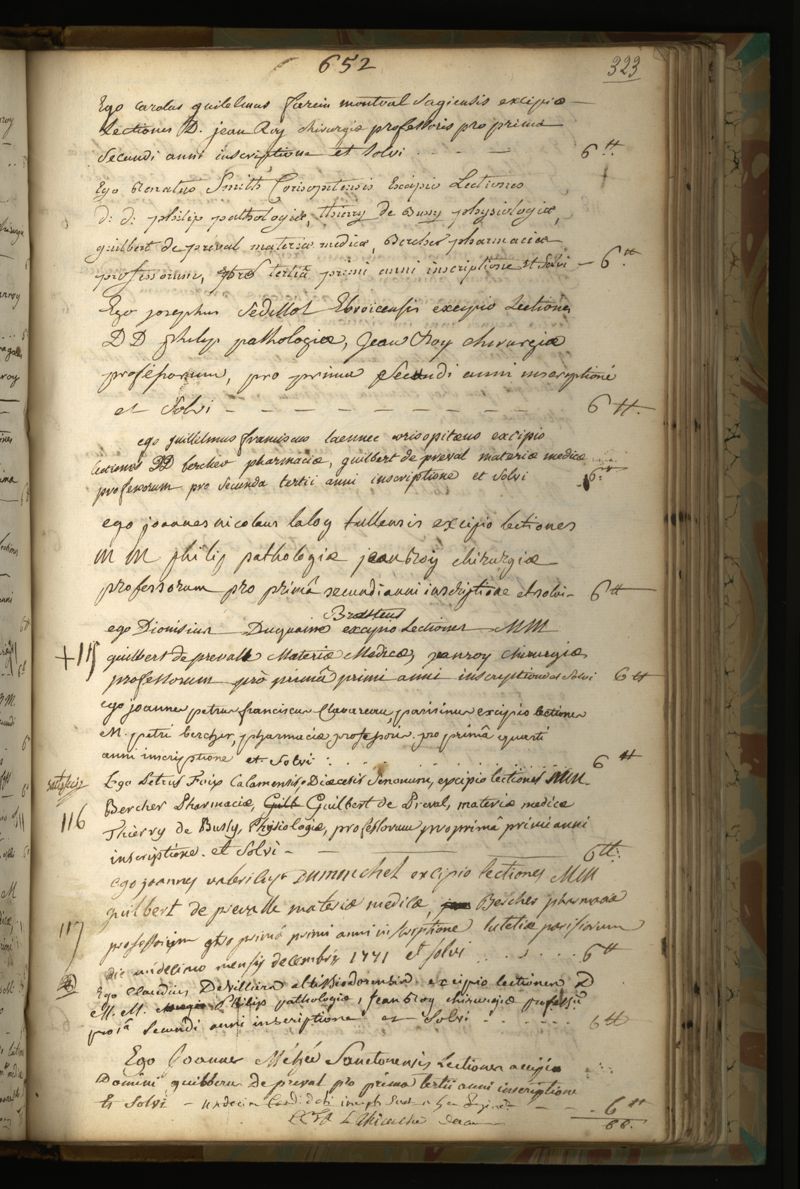 652
323
Ego Carolus guilelmus farein montval Sagiensis excipio
Lectiones D. jean Roy chirurgiæ professoris pro prima
Secundi anni inscriptione et solvi 6 ₶
Ego Renatus Smith Corisopitensis Excipio Lectiones
d: d: philip pathologiæ, thierry de Bussy physiologiæ,
guilbert de préval materiæ medicæ, Bercher pharmaciæ
professorum, pro tertiâ primi anni inscriptione et solvi - 6 ₶
Ego josephus Sedillot Ebroicensis excipio Lectiones
DD philip pathologiæ, Jean Roy chirurgiæ
professorum, pro prima secundi anni inscriptione
et Solvi 6 ₶
ego guillelmus franciscus laennec corisopitæus excipio
lectiones DD bercher pharmaciæ, guilbert de preval materiæ medicæ
professorum pro secunda tertii anni inscriptione et solvi 6 ₶
ego joannes nicolaus laloy tullensis excipio lectiones
MM philip pathologiæ jean roy chirurgiæ
professorum pro primâ secundi anni inscriptione et solvi - 6 ₶
ego Dionisius Duquaine excipio Lectiones MM
+ 115 guilbert de preval Materiæ Medicæ, jean roy chirurgiæ
professorum pro primâ primi anni inscriptione et solvi 6 ₶
ego joannes petrus franciscus Clavareau, parisinus excipio lectiones
M. petri bercher, pharmaciæ professoris. pro primâ quarti
anni inscriptione et Solvi 6 ₶
Ego Petrus Foix Calamensis Diœcesis Senonum, excipio lectiones MM.
116 Bercher Pharmaciæ, Guilbert de Preval, materiæ medicæ
Thierry de Bussy, Physiologiæ, professorum pro primâ primi anni
inscriptione. et Solvi - 6 ₶
Ego joannes Dummichel excipio lectiones MM
guilbert de prevalle materiæ medicæ, Bercher pharmaciæ
117 professorum pro primâ primi anni inscriptione lutetiæ parisiorum
die undecimo mensis decembris 1771 et solvi 6 ₶
Ego Claudius Devilliers altissiodorensis excipio lectiones D
M. M. Philip pathologiæ, Jean Roy chirurgiæ professū
pro 1ª secundi anni inscriptione et Solvi 6 ₶
Ego Joannes Méhée Sanctonensis Lectiones accipio
Domini guilberti de preval pro prima tertii anni inscriptione
Et Solvi - undecim Candidati 6 ₶
L. P. F. R. Le Thieullier Decanus 66.